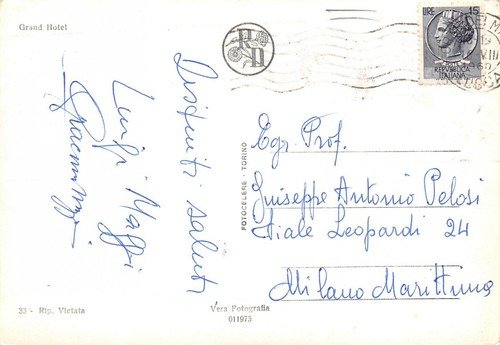 Grand Hotel
Distinti saluti
Luigi Maggi
33 - Rip. Vietata
FOTOCELERE - TORINO
Vera Fotografia
011975
LIRE 15
REPVBBLICA
ITALIANA
Egr. Prof.
Giuseppe Antonio Pelosi
Viale Leopardi 24
Milano Marittima